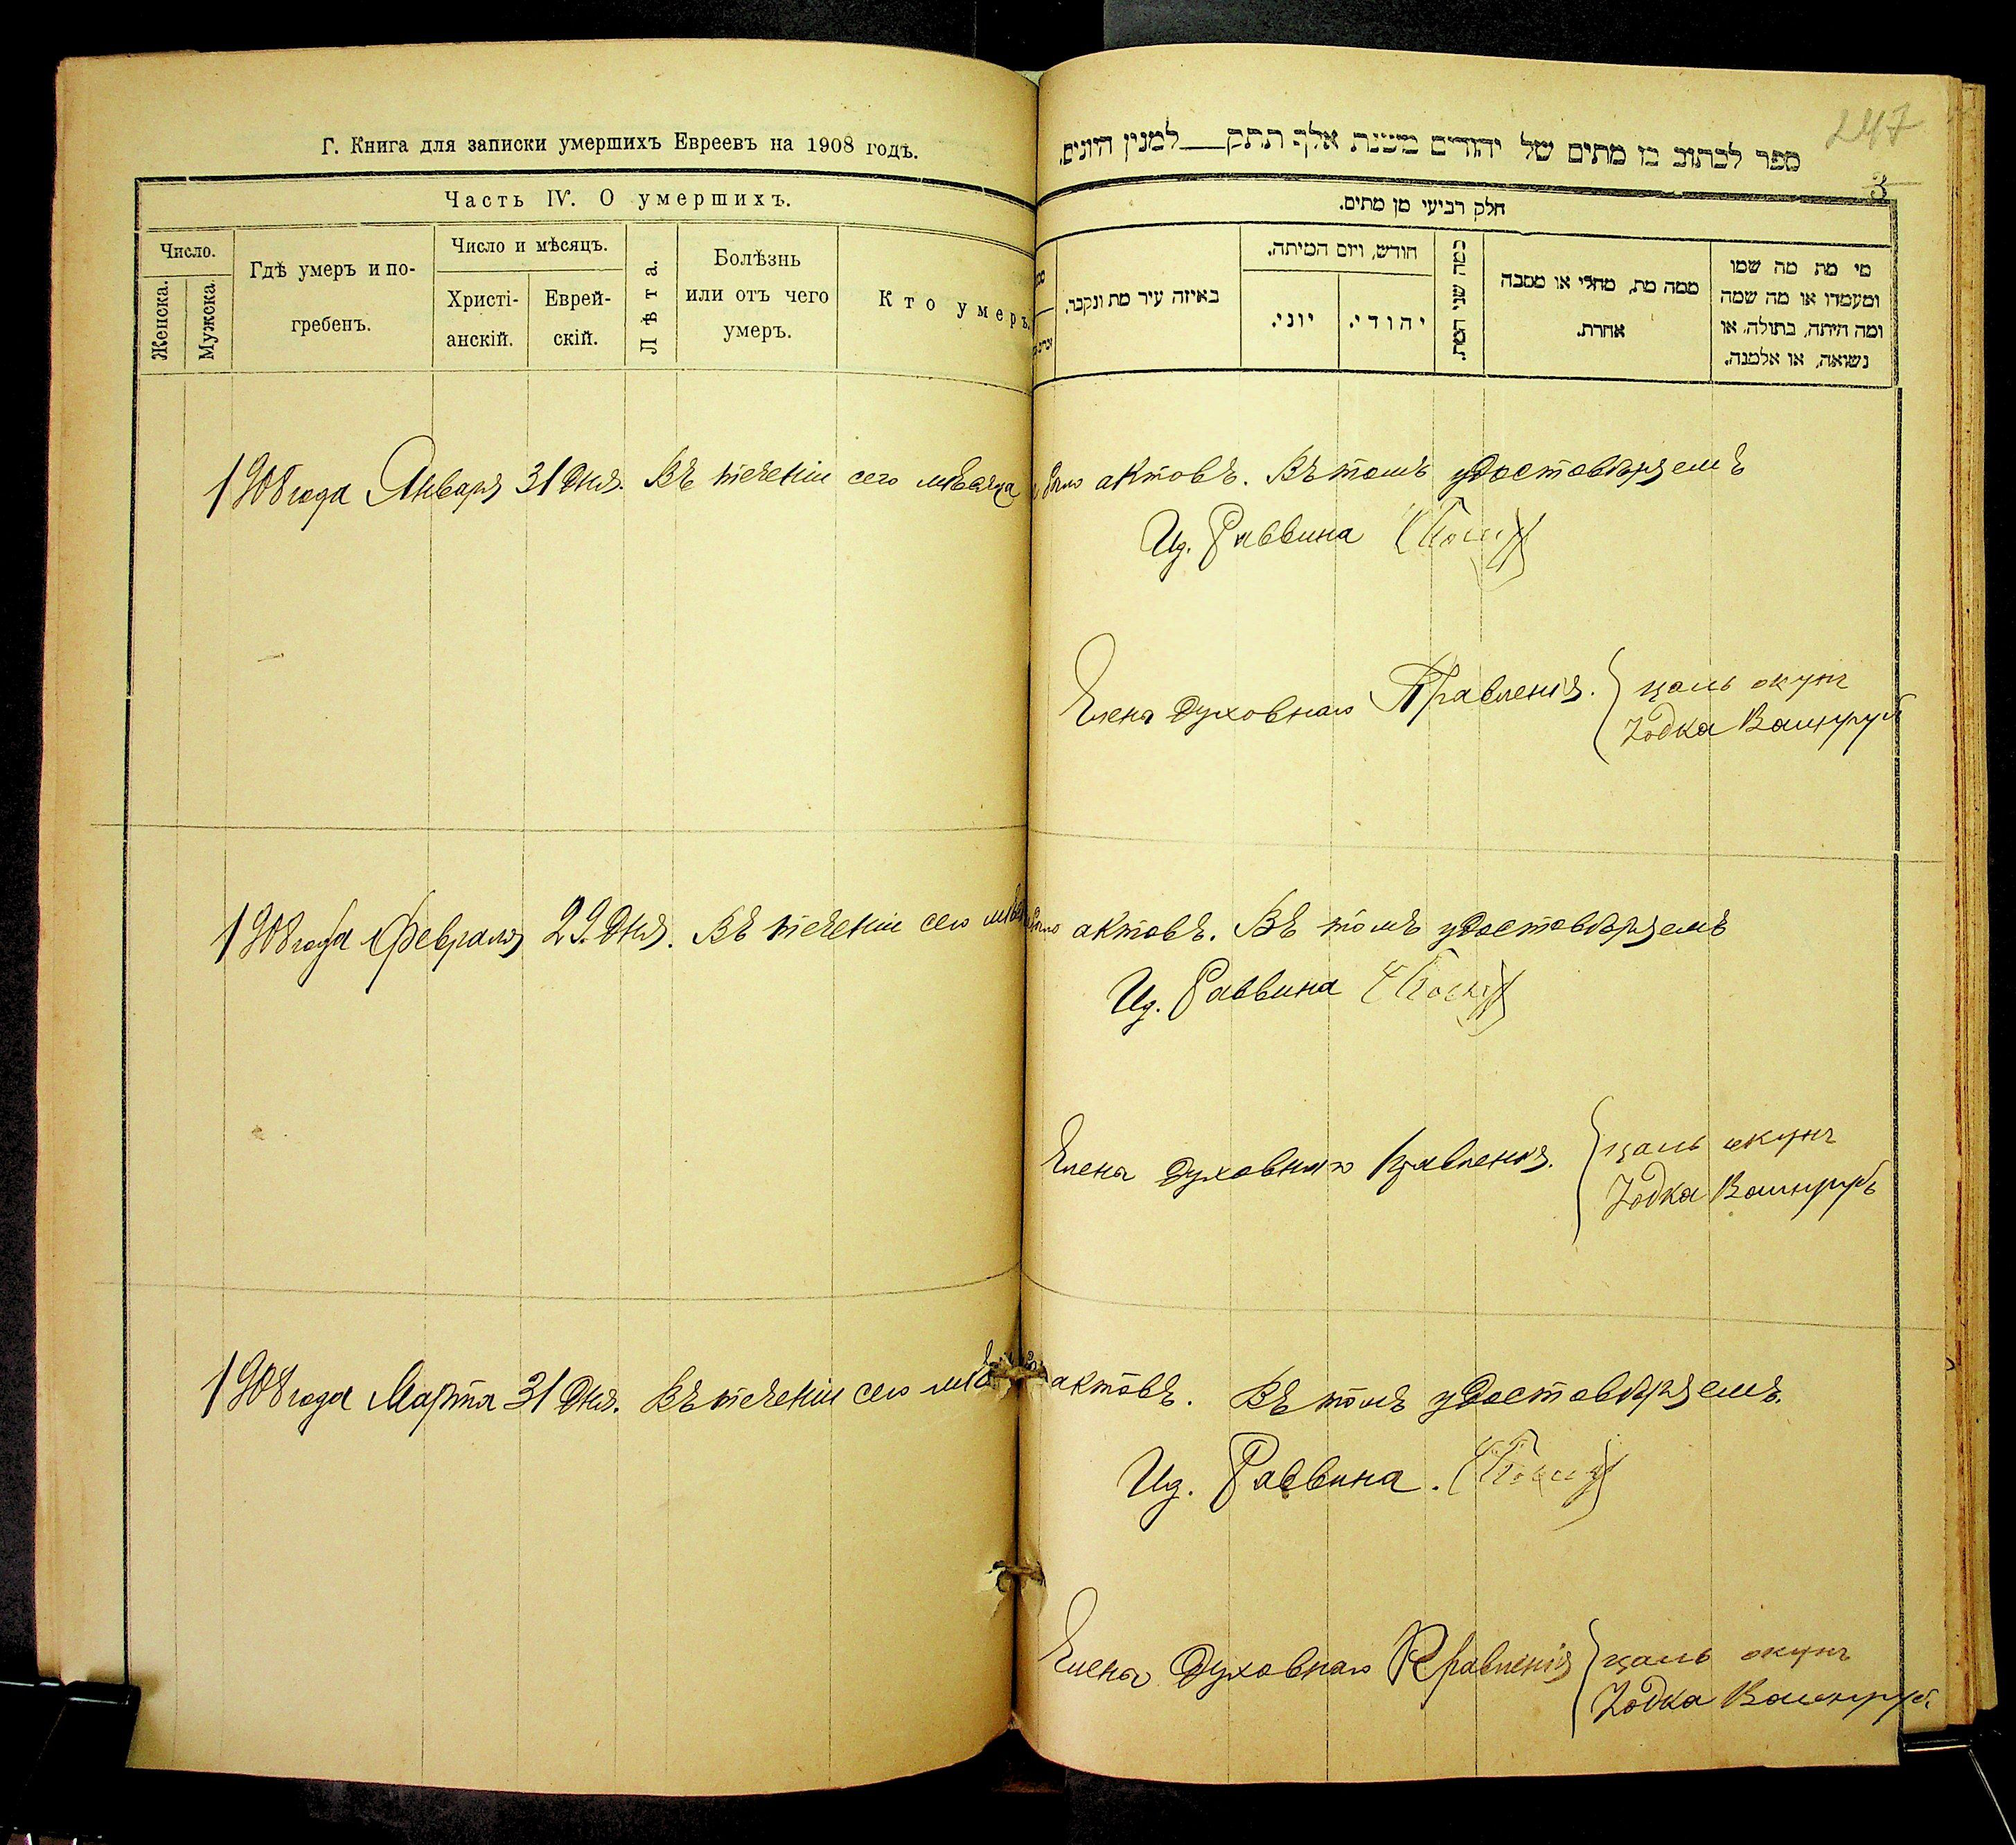 Г. Книга для записки умершихъ Евреевъ на 1908 годъ.
Часть IV. О умершихъ.
Число.
Женска.
Мужска.
Гдѣ умеръ и по-
гребенъ.
Число и мѣсяцъ.
Христі-
анскій.
Еврей-
скій.
Лѣта.
Болѣзнь
или отъ чего
умеръ.
Кто умеръ.
247
3
ספר לכתוב בו מתים של יהודים משנת אלף תתק למנין היונים.
חלק רביעי מן מתים.
באיזה עיר מת ונקבר.
חודש, ויום המיתה.
יוני.
יהודי.
כמה שני המת.
ממה מת, מחלי או מסבה
אחרת.
מי מת מה שמו
ומעמדו או מה שמה
ומה היתה, בתולה, או
נשואה, או אלמנה.
1908 года Января 31 дня. Въ теченіи сего мѣсяца было актовъ. Въ томъ удостовѣряемъ
Раввина
Члена Духовнаго Правленія.
1908 года Февраля 29. дня. Въ теченіи сего актовъ. Въ томъ удостовѣряемъ
Раввина
Члена Духовнаго Правленія.
1908 года Марта 31 дня. Въ теченіи сего актовъ. Въ томъ удостовѣряемъ.
Раввина.
Члена Духовнаго Правленія